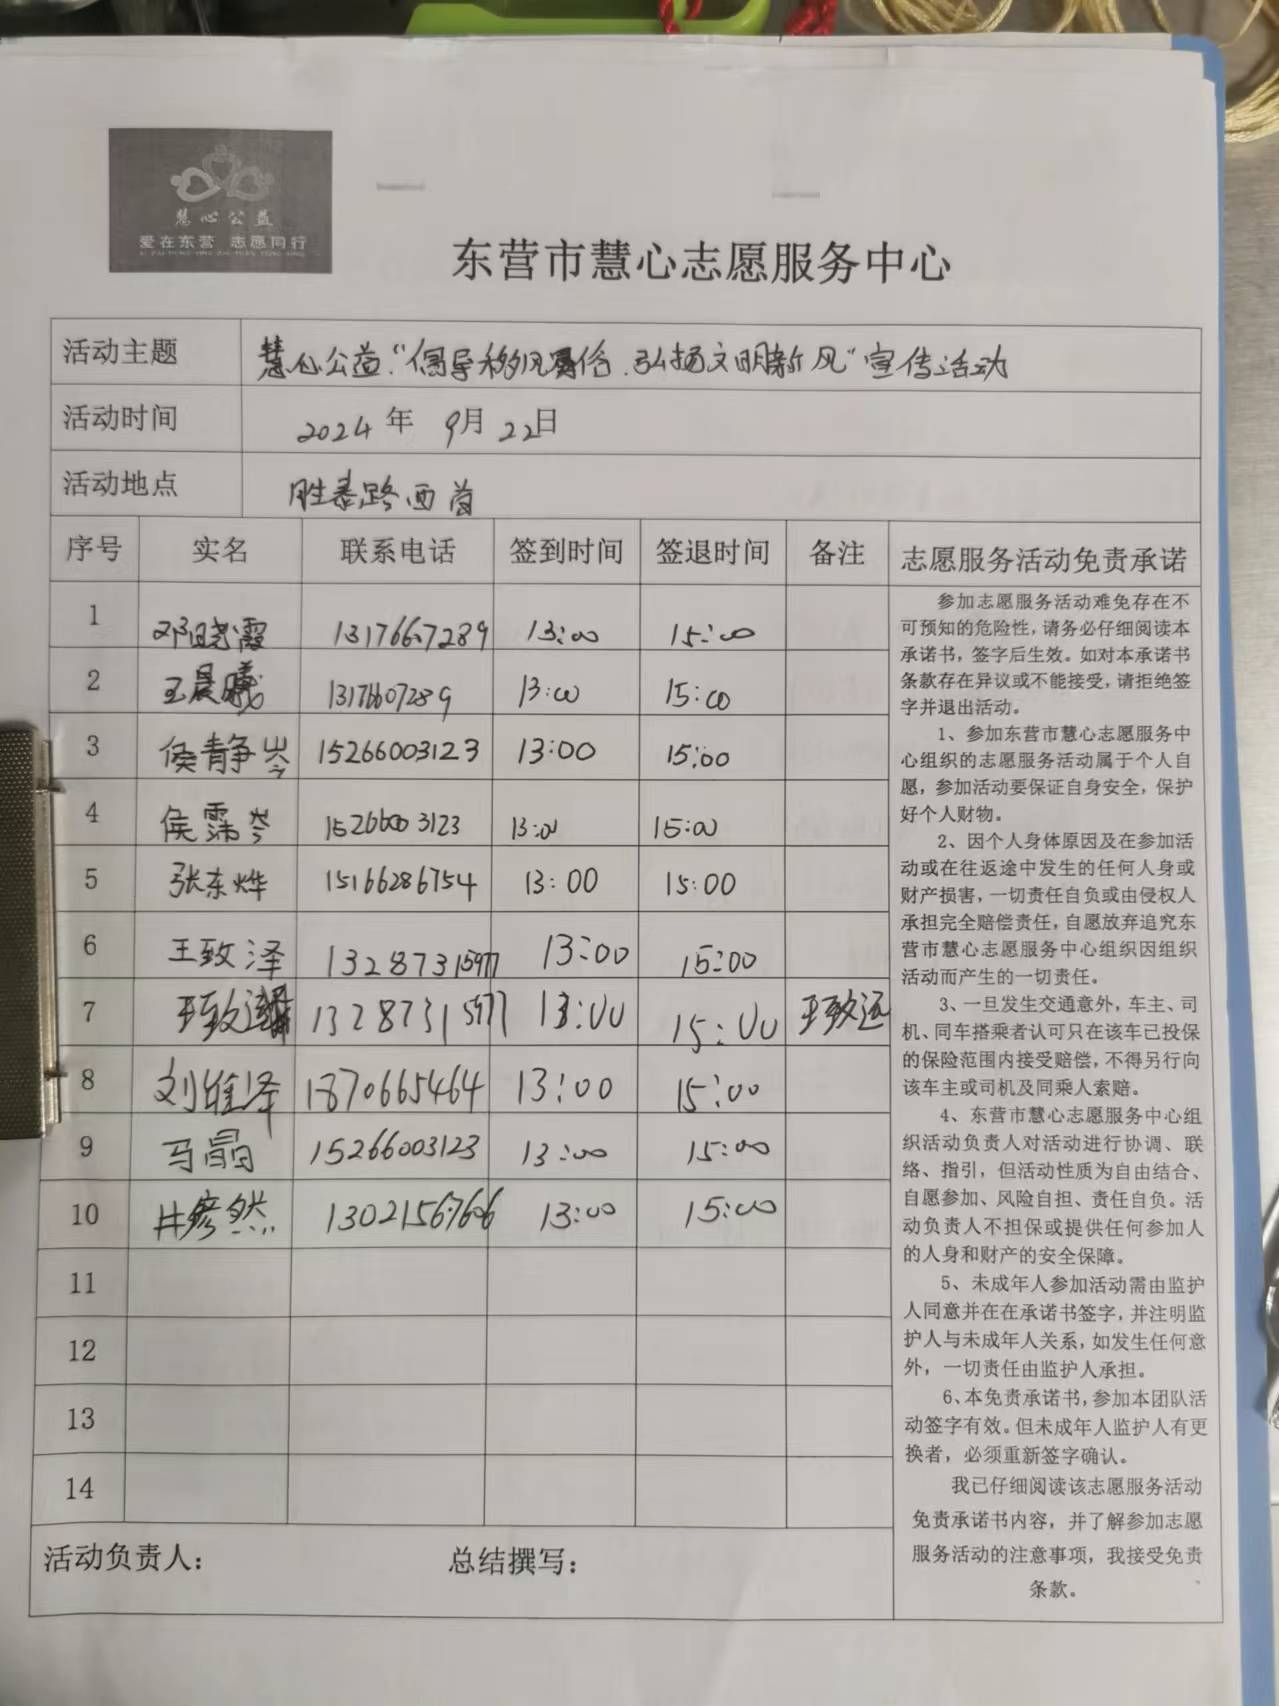 慧心公益
爱在东营 志愿同行
东营市慧心志愿服务中心
活动主题 慧心公益“倡导移风易俗、弘扬文明新风”宣传活动
活动时间 2024年 9月22日
活动地点 胜泰路西首
序号 实名 联系电话 签到时间 签退时间 备注 志愿服务活动免责承诺
1 邓晓霞 13176607289 13:00 15:00
2 王晨曦 13176607289 13:00 15:00
3 侯静岑 15266003123 13:00 15:00
4 侯霈岑 15266003123 13:00 15:00
5 张东烨 15166286754 13:00 15:00
6 王致泽 13287315977 13:00 15:00
7 王致远 13287315977 13:00 15:00 王致远
8 刘维泽 1870665464 13:00 15:00
9 马晶 15266003123 13:00 15:00
10 井彦然 13021567606 13:00 15:00
11
12
13
14
活动负责人： 总结撰写：
参加志愿服务活动难免存在不
可预知的危险性，请务必仔细阅读本
承诺书，签字后生效。如对本承诺书
条款存在异议或不能接受，请拒绝签
字并退出活动。
1、参加东营市慧心志愿服务中
心组织的志愿服务活动属于个人自
愿，参加活动要保证自身安全，保护
好个人财物。
2、因个人身体原因及在参加活
动或在往返途中发生的任何人身或
财产损害，一切责任自负或由侵权人
承担完全赔偿责任，自愿放弃追究东
营市慧心志愿服务中心组织因组织
活动而产生的一切责任。
3、一旦发生交通意外，车主、司
机、同车搭乘者认可只在该车已投保
的保险范围内接受赔偿，不得另行向
该车主或司机及同乘人索赔。
4、东营市慧心志愿服务中心组
织活动负责人对活动进行协调、联
络、指引，但活动性质为自由结合、
自愿参加、风险自担、责任自负。活
动负责人不担保或提供任何参加人
的人身和财产的安全保障。
5、未成年人参加活动需由监护
人同意并在在承诺书签字，并注明监
护人与未成年人关系，如发生任何意
外，一切责任由监护人承担。
6、本免责承诺书，参加本团队活
动签字有效。但未成年人监护人有更
换者，必须重新签字确认。
我已仔细阅读该志愿服务活动
免责承诺书内容，并了解参加志愿
服务活动的注意事项，我接受免责
条款。